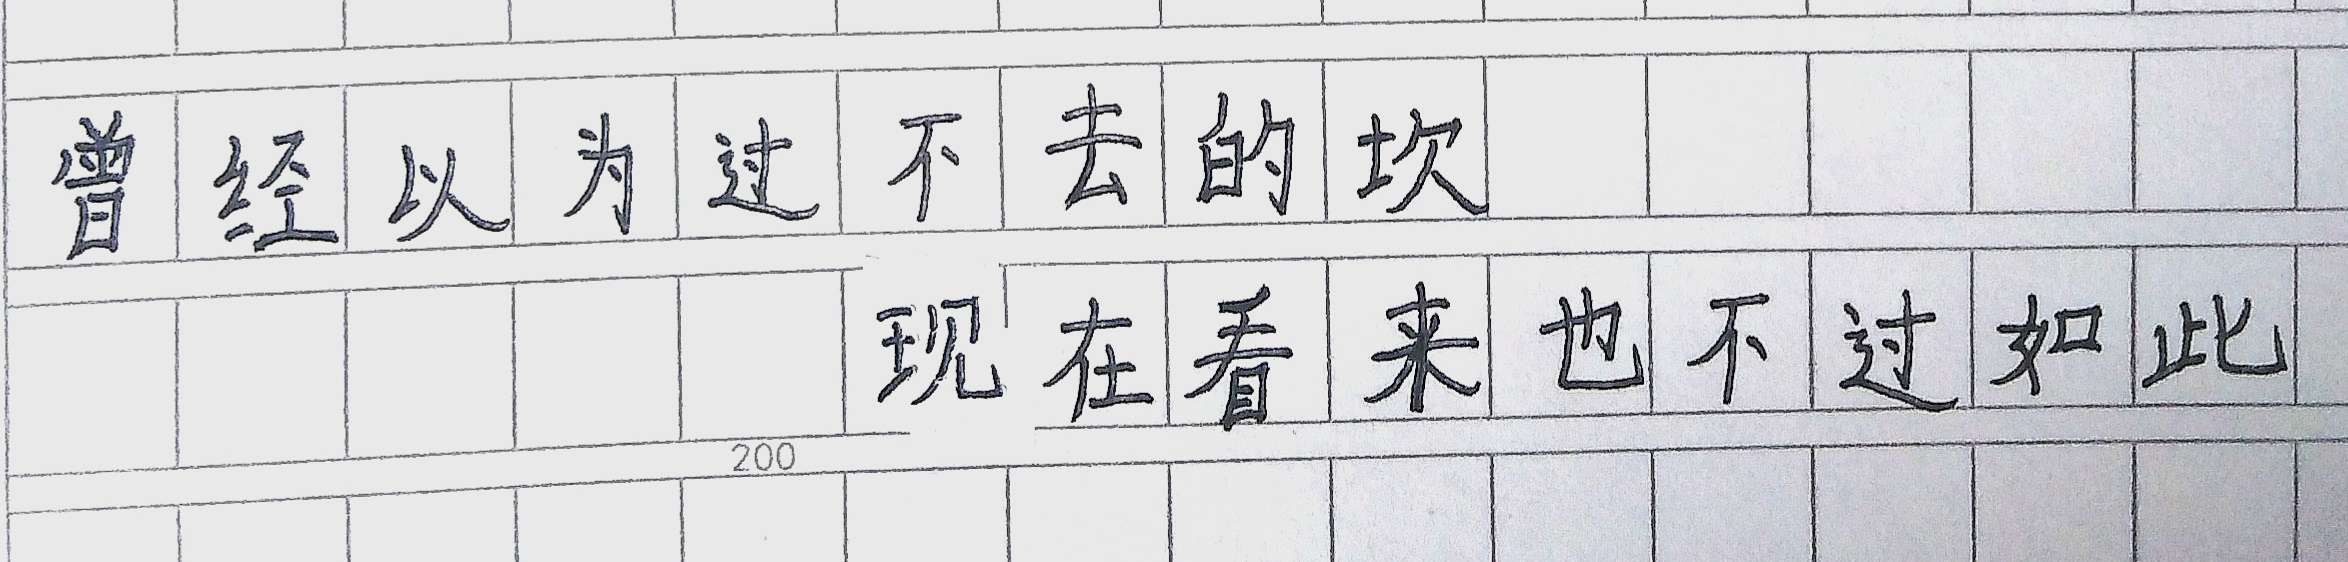 曾经以为过不去的坎
现在看来也不过如此
200